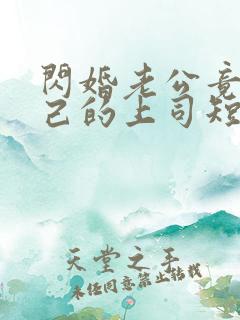 閃婚老公竟
己的上司短
天堂之手
未经同意禁止转载